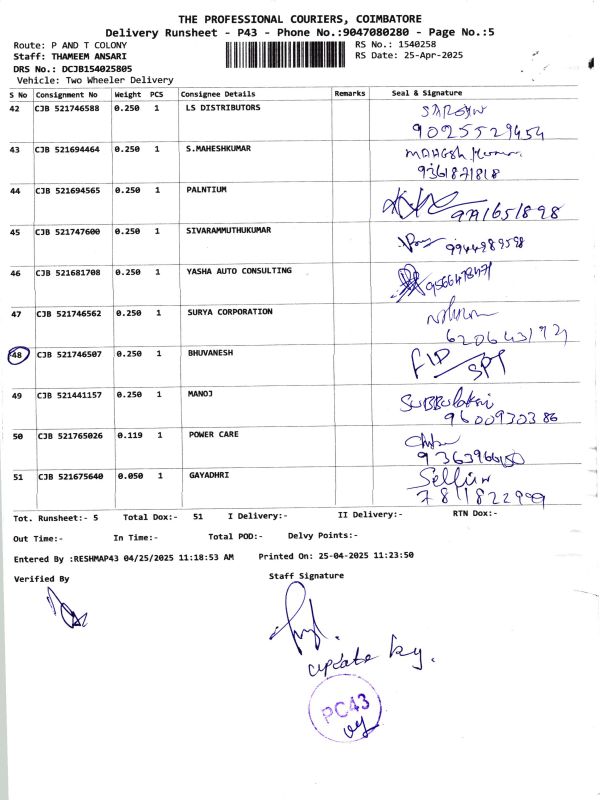 THE PROFESSIONAL COURIERS, COIMBATORE
Delivery Runsheet - P43 - Phone No.:9047080280 - Page No.:5
Route: P AND T COLONY RS No.: 1540258
Staff: THAMEEM ANSARI RS Date: 25-Apr-2025
DRS No.: DCJB154025805
Vehicle: Two Wheeler Delivery
S No Consignment No Weight PCS Consignee Details Remarks Seal & Signature
42 CJB 521746588 0.250 1 LS DISTRIBUTORS
9025529454
43 CJB 521694464 0.250 1 S.MAHESHKUMAR
9361871818
44 CJB 521694565 0.250 1 PALNTIUM
9791651898
45 CJB 521747600 0.250 1 SIVARAMMUTHUKUMAR
9944989598
46 CJB 521681708 0.250 1 YASHA AUTO CONSULTING
47 CJB 521746562 0.250 1 SURYA CORPORATION
48 CJB 521746507 0.250 1 BHUVANESH
49 CJB 521441157 0.250 1 MANOJ
9600930386
50 CJB 521765026 0.119 1 POWER CARE
51 CJB 521675640 0.050 1 GAYADHRI
7811822999
Tot. Runsheet:- 5 Total Dox:- 51 I Delivery:- II Delivery:- RTN Dox:-
Out Time:- In Time:- Total POD:- Delvy Points:-
Entered By :RESHMAP43 04/25/2025 11:18:53 AM Printed On: 25-04-2025 11:23:50
Verified By Staff Signature
update by.
PC43